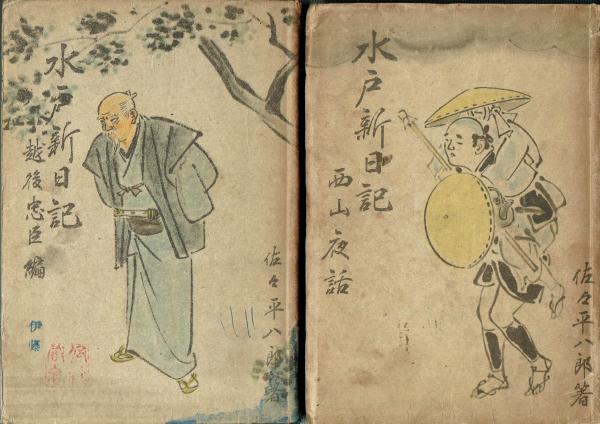 水戸新日記
越後忠臣編
佐々平八郎著
伊藤
水戸新日記
西山夜話
佐々平八郎著